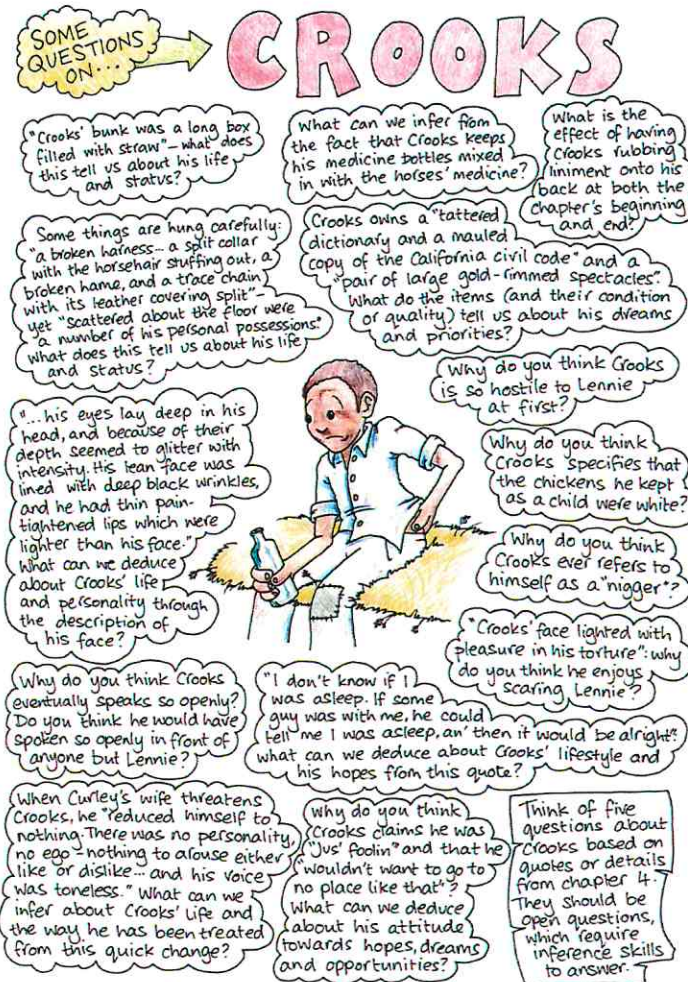 SOME
QUESTIONS
ON...
CROOKS
"Crooks' bunk was a long box
filled with straw" – what does
this tell us about his life
and status?
What can we infer from
the fact that Crooks keeps
his medicine bottles mixed
in with the horses' medicine?
What is the
effect of having
Crooks rubbing
liniment onto his
back at both the
chapter's beginning
and end?
Some things are hung carefully:
"a broken harness... a split collar
with the horsehair stuffing out, a
broken hame, and a trace chain
with its leather covering split" –
yet "scattered about the floor were
a number of his personal possessions."
What does this tell us about his life
and status?
Crooks owns a "tattered
dictionary and a mauled
copy of the California civil code" and a
"pair of large gold-rimmed spectacles".
What do the items (and their condition
or quality) tell us about his dreams
and priorities?
Why do you think Crooks
is so hostile to Lennie
at first?
"...his eyes lay deep in his
head, and because of their
depth seemed to glitter with
intensity. His lean face was
lined with deep black wrinkles,
and he had thin pain-
tightened lips which were
lighter than his face."
What can we deduce
about Crooks' life
and personality through
the description of
his face?
Why do you think
Crooks specifies that
the chickens he kept
as a child were white?
Why do you think
Crooks ever refers to
himself as a "nigger"?
"Crooks' face lighted with
pleasure in his torture": why
do you think he enjoys
scaring Lennie?
Why do you think Crooks
eventually speaks so openly?
Do you think he would have
spoken so openly in front of
anyone but Lennie?
"I don't know if I
was asleep. If some
guy was with me, he could
tell me I was asleep, an' then it would be alright":
what can we deduce about Crooks' lifestyle and
his hopes from this quote?
When Curley's wife threatens
Crooks, he "reduced himself to
nothing. There was no personality,
no ego – nothing to arouse either
like or dislike... and his voice
was toneless." What can we
infer about Crooks' life and
the way he has been treated
from this quick change?
Why do you think
Crooks claims he was
"Jus' foolin'" and that he
"wouldn't want to go to
no place like that"?
What can we deduce
about his attitude
towards hopes, dreams
and opportunities?
Think of five
questions about
Crooks based on
quotes or details
from chapter 4.
They should be
open questions,
which require
inference skills
to answer.